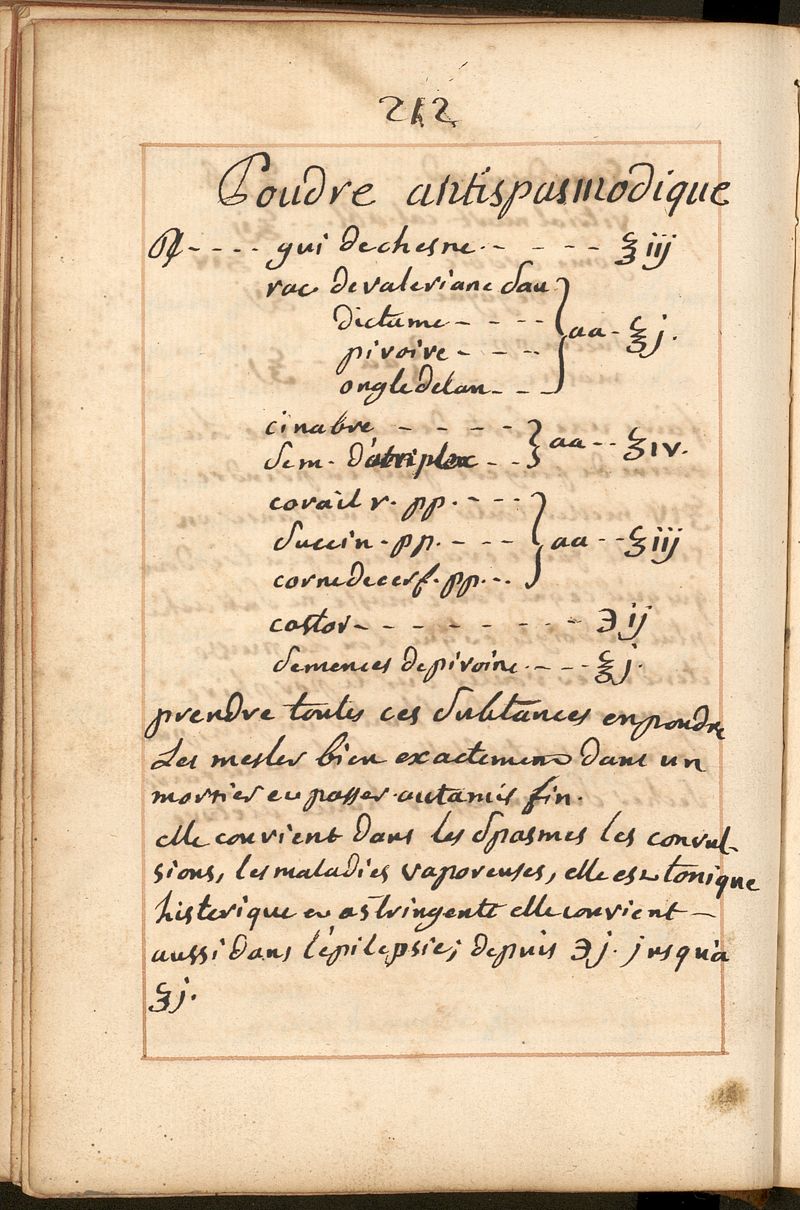 212
Poudre antispasmodique
℞ - - - - gui de chesne - - - - - ℥ iij
rac de valeriane sau
dictame - - - -
pivoire - - - - } aa - ℥ j.
ongle delan - - -
cinabre - - - - -
sem. d'atriplex - - } aa - - ℥ IV.
corail r. pp. - - - -
succin. pp. - - - - } aa - - ℥ iij
corne de cerf. pp. - -
castor - - - - - - - - ℈ ij
semences de pivoine - - - - ℥ j.
prendre toutes ces substances en poudre
Les mesler bien exactement dans un
mortier et passer au tamis fin.
elle convient dans les spasmes les convul-
sions, les maladies vaporeuses, elle est tonique
histerique et astringente elle convient -
aussi dans l'épilepsie; depuis ℈ j. jusqu'a
℥ j.